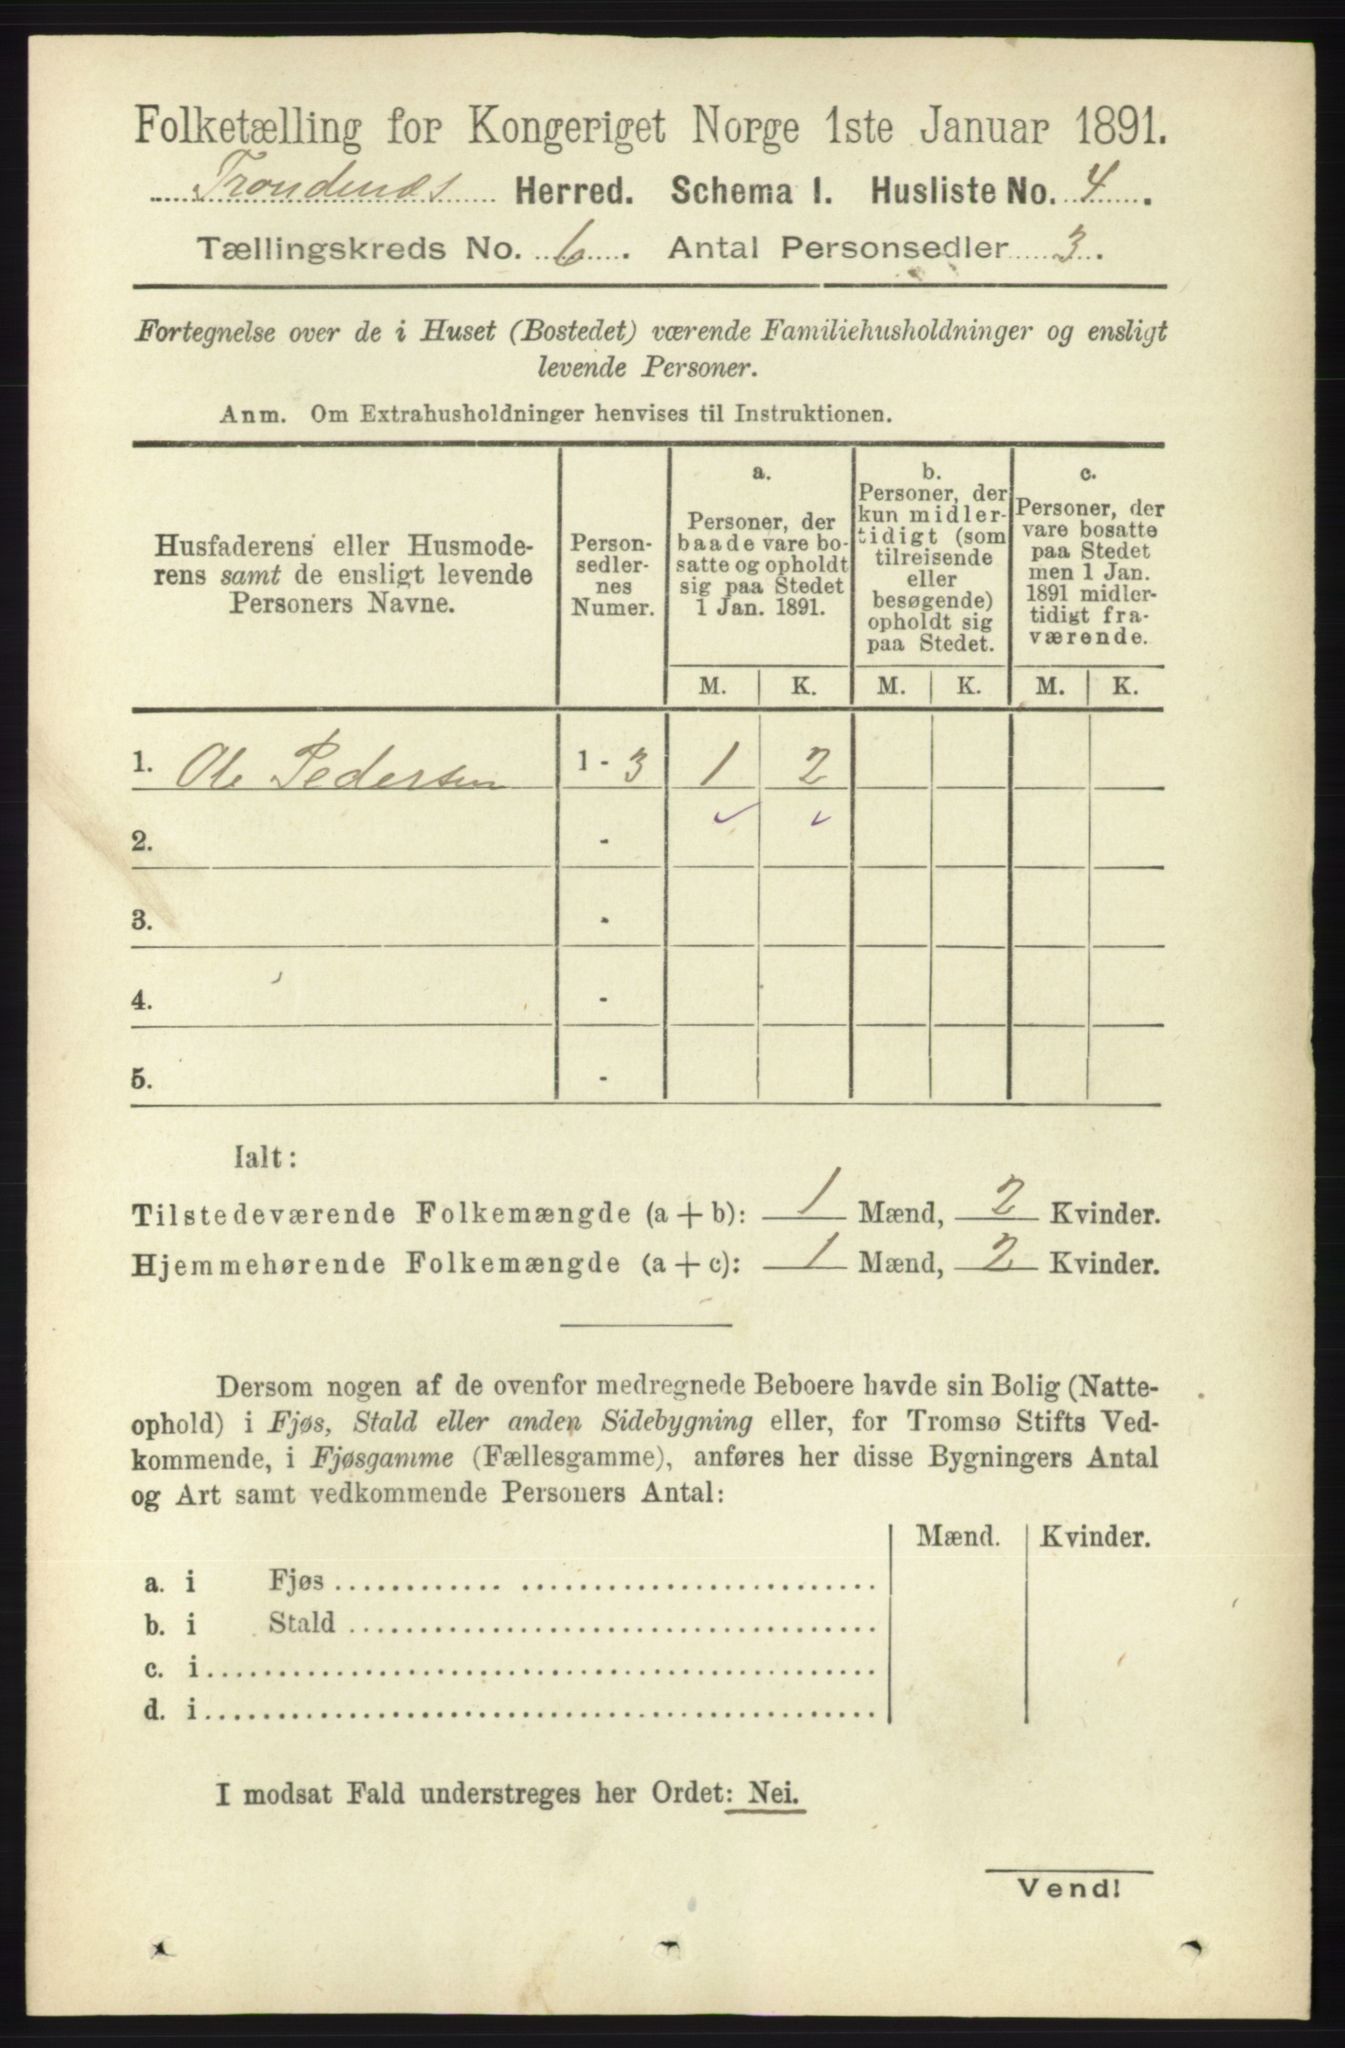 Folketælling for Kongeriget Norge 1ste Januar 1891.
Trondenæs Herred. Schema I. Husliste No. 4.
Tællingskreds No. 6. Antal Personsedler 3.
Fortegnelse over de i Huset (Bostedet) værende Familiehusholdninger og ensligt
levende Personer.
Anm. Om Extrahusholdninger henvises til Instruktionen.
Husfaderens eller Husmode-
rens samt de ensligt levende
Personers Navne.
Person-
sedler-
nes
Numer.
a.
Personer, der
baade vare bo-
satte og opholdt
sig paa Stedet
1 Jan. 1891.
b.
Personer, der
kun midler-
tidigt (som
tilreisende
eller
besøgende)
opholdt sig
paa Stedet.
c.
Personer, der
vare bosatte
paa Stedet
men 1 Jan.
1891 midler-
tidigt fra-
værende.
M. K. M. K. M. K.
1. Ole Pedersen 1 - 3 1 2
2. -
3. -
4. -
5. -
Ialt:
Tilstedeværende Folkemængde (a + b): 1 Mænd, 2 Kvinder.
Hjemmehørende Folkemængde (a + c): 1 Mænd, 2 Kvinder.
Dersom nogen af de ovenfor medregnede Beboere havde sin Bolig (Natte-
ophold) i Fjøs, Stald eller anden Sidebygning eller, for Tromsø Stifts Ved-
kommende, i Fjøsgamme (Fællesgamme), anføres her disse Bygningers Antal
og Art samt vedkommende Personers Antal:
Mænd. Kvinder.
a. i Fjøs
b. i Stald
c. i
d. i
I modsat Fald understreges her Ordet: Nei.
Vend!